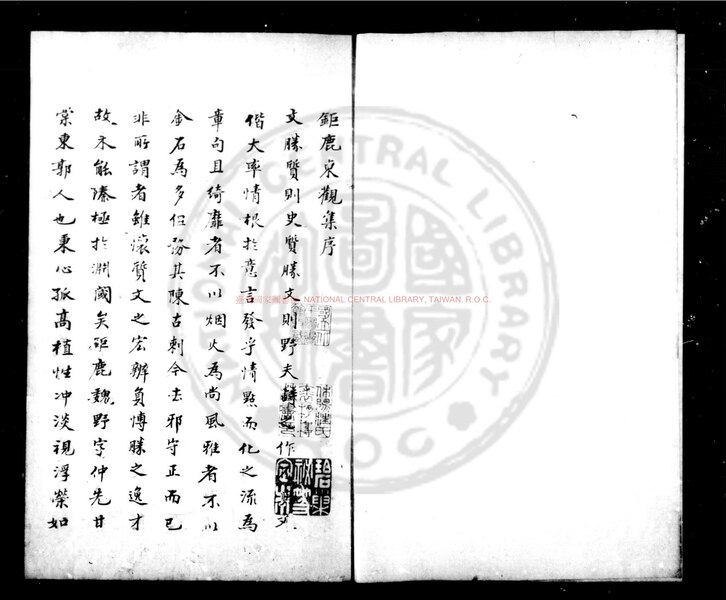 鉅鹿東觀集序
文勝質則史質勝文則野夫作
偕大率情根於意言發乎情黙而化之流為
章句且綺靡者不以烟火為尚風雅者不以
金石為多但務其陳古刺今去邪守正而已
非所謂者雖懷質文之宏辨負博勝之逸才
故未能臻極於淵閫矣鉅鹿魏野字仲先甘
棠東郭人也秉心孤高植性冲淡視浮榮如
NATIONAL CENTRAL LIBRARY, TAIWAN. R.O.C.